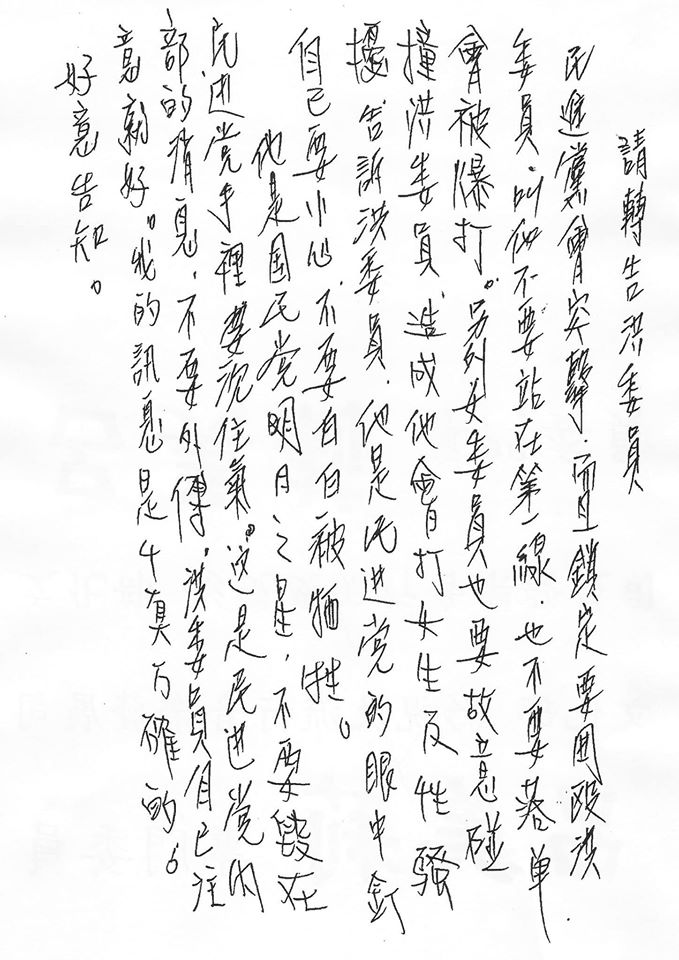 請轉告洪委員
民進黨會突擊．而且鎖定要囲毆洪
委員．叫他不要站在第一線．也不要落单．
會被爆打。另外女委員也要故意碰
撞洪委員．造成他會打女生及性騷
擾告訴洪委員．他是民进党的眼中釘
自己要小心．不要白白被牺牲。
他是国民党明日之星．不要毀在
民进党手裡要沉住氣。这是民进党内
部的消息．不要外傳．洪委員自已注
意就好。我的訊息是千真万確的。
好意告知。